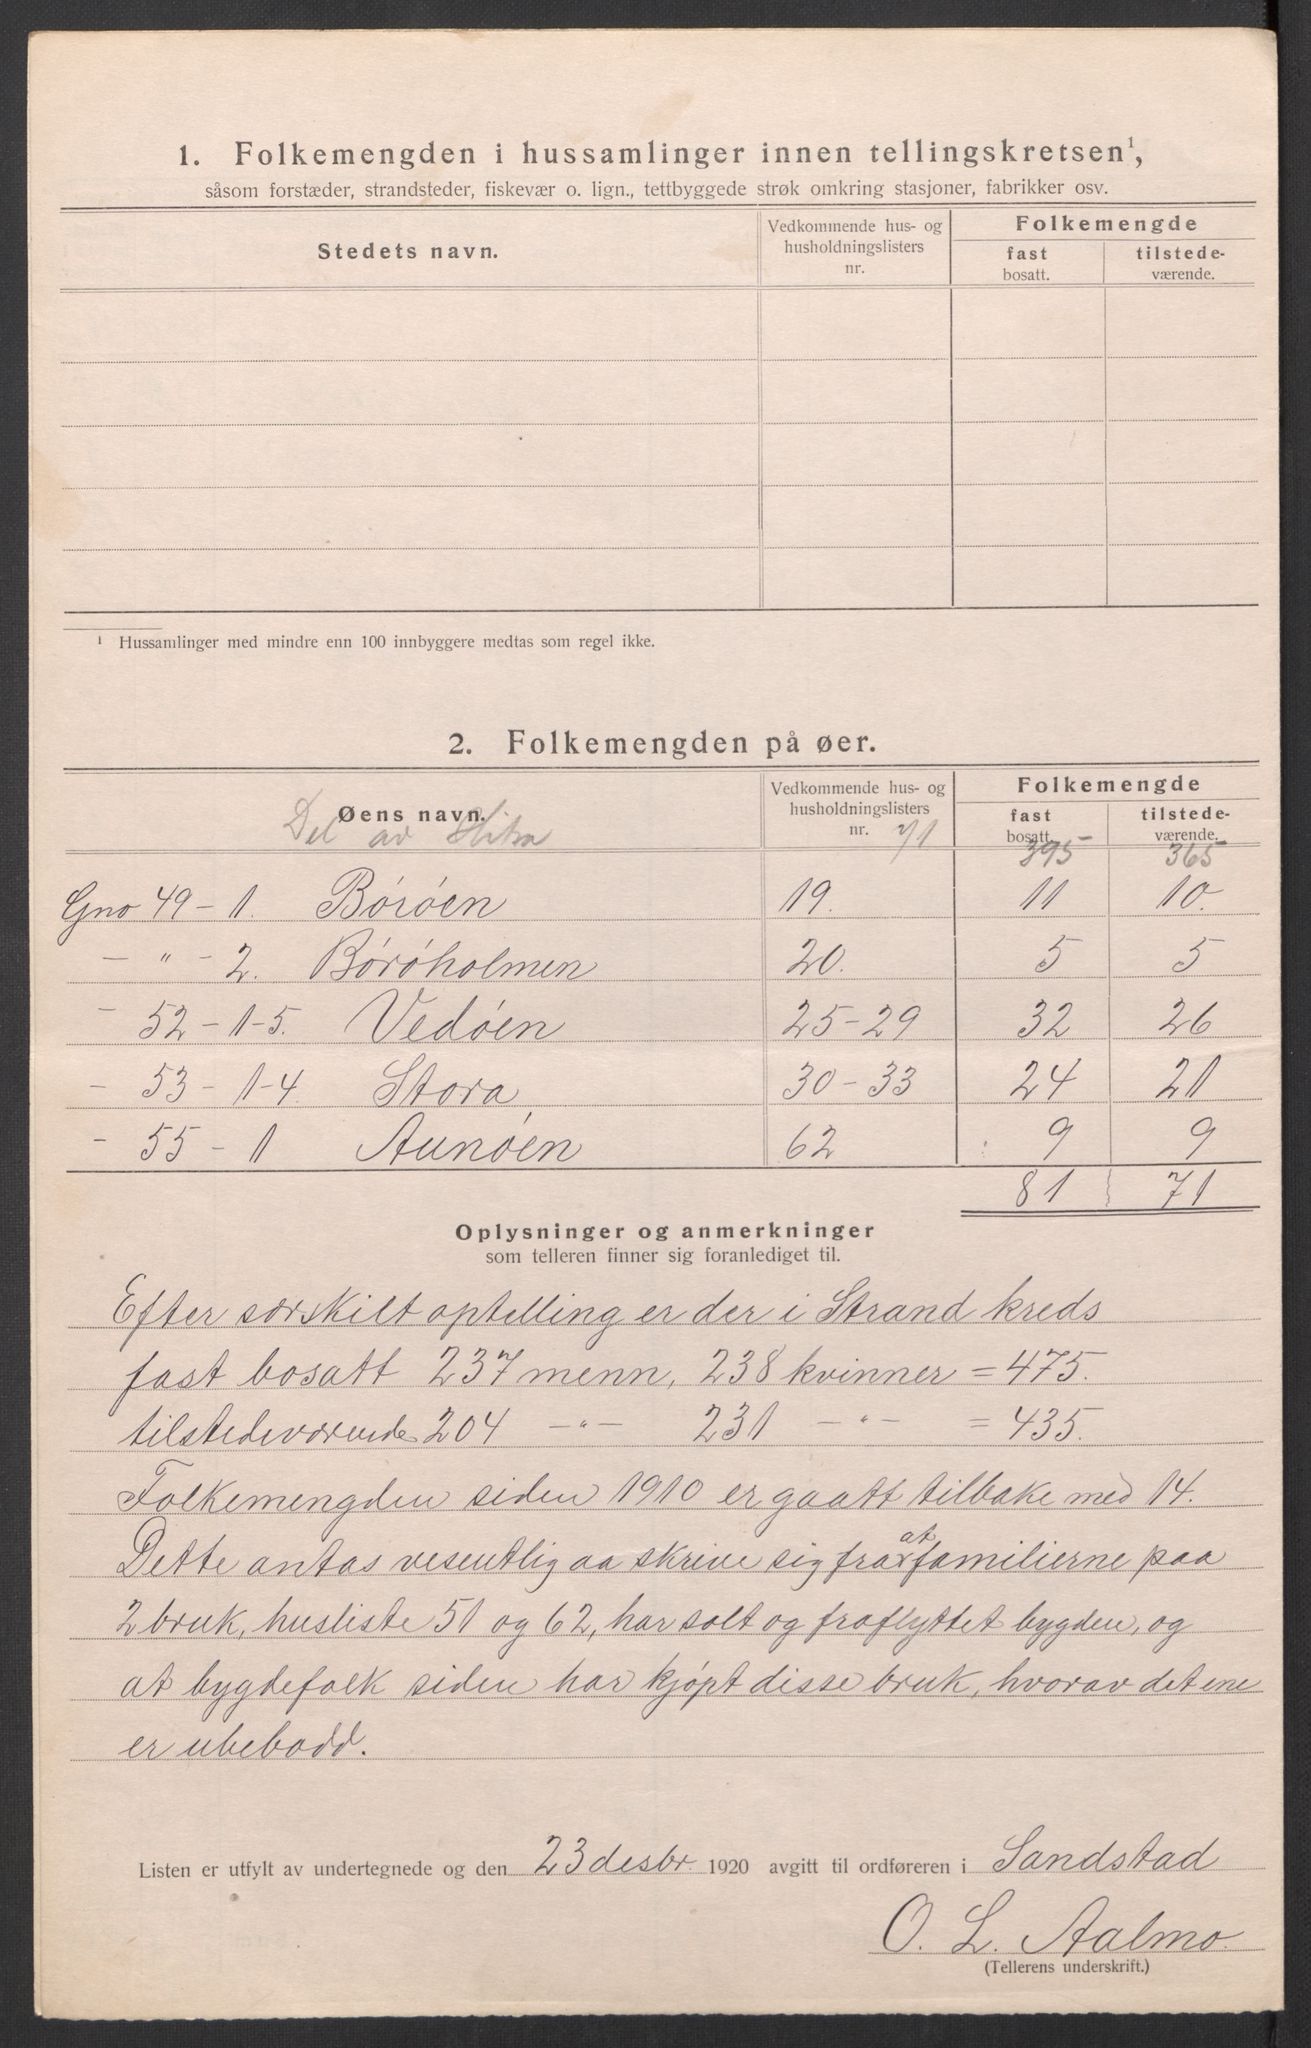 1. Folkemengden i hussamlinger innen tellingskretsen¹,
såsom forstæder, strandsteder, fiskevær o. lign., tettbyggede strøk omkring stasjoner, fabrikker osv.
Stedets navn.
Vedkommende hus- og husholdningslisters nr.
Folkemengde
fast bosatt.
tilstedeværende.
¹ Hussamlinger med mindre enn 100 innbyggere medtas som regel ikke.
2. Folkemengden på øer.
Øens navn.
Vedkommende hus- og husholdningslisters nr.
Folkemengde
fast bosatt.
tilstedeværende.
Del av Hitra 395 365
Gno 49 - 1. Børøen 19. 11 10.
- " - 2. Børøholmen 20. 5 5
- 52 - 1-5. Vedøen 25-29 32 26
- 53 - 1-4. Stora 30-33 24 21
- 55 - 1 Aunøen 62 9 9
81 71
Oplysninger og anmerkninger
som telleren finner sig foranlediget til.
Efter særskilt optelling er der i Strand kreds
fast bosatt 237 menn, 238 kvinner = 475.
tilstedeværende 204 -"- 231 -"- = 435.
Folkemengden siden 1910 er gaatt tilbake med 14.
Dette antas vesentlig aa skrive sig fra at familierne paa
2 bruk, husliste 51 og 62, har solt og fraflyttet bygden, og
at bygdefolk siden har kjøpt disse bruk, hvorav det ene
er ubebodd.
Listen er utfylt av undertegnede og den 23 desbr. 1920 avgitt til ordføreren i Sandstad
O. L. Aalmo.
(Tellerens underskrift.)